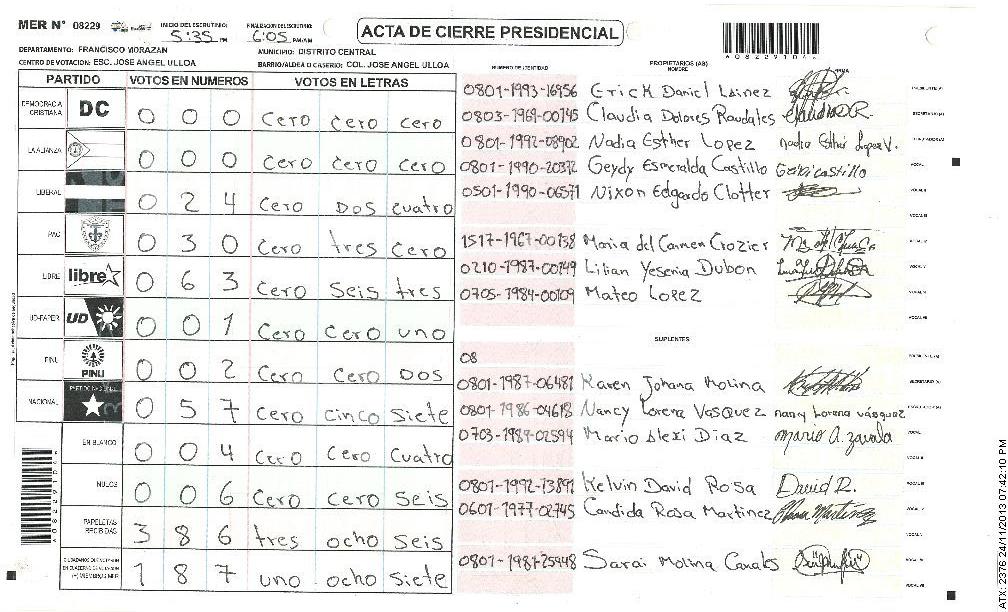 MER N° 08229
INICIO DEL ESCRUTINIO: 5:35 PM
FINALIZACION DEL ESCRUTINIO: 6:05 PM/AM
ACTA DE CIERRE PRESIDENCIAL
A08229104
DEPARTAMENTO: FRANCISCO MORAZAN
MUNICIPIO: DISTRITO CENTRAL
CENTRO DE VOTACION: ESC. JOSE ANGEL ULLOA
BARRIO/ALDEA O CASERIO: COL. JOSE ANGEL ULLOA
PARTIDO VOTOS EN NUMEROS VOTOS EN LETRAS
DEMOCRACIA CRISTIANA DC 0 0 0 cero cero cero
LA ALIANZA 0 0 0 cero cero cero
LIBERAL 0 2 4 cero Dos cuatro
PAC 0 3 0 cero tres cero
LIBRE libre 0 6 3 cero seis tres
UD-FAPER UD 0 0 1 cero cero uno
PINU PINU 0 0 2 cero cero Dos
NACIONAL 0 5 7 cero cinco siete
EN BLANCO 0 0 4 cero cero cuatro
NULOS 0 0 6 cero cero seis
PAPELETAS RECIBIDAS 3 8 6 tres ocho seis
1 8 7 uno ocho siete
NUMERO DE IDENTIDAD PROPIETARIOS (AS) NOMBRE FIRMA
0801-1993-16956 Erick Daniel Lainez PRESIDENTE(A)
0803-1969-00745 Claudia Dolores Raudales SECRETARIO(A)
0801-1992-08902 Nadia Esther Lopez Nadia Esther Lopez V.
0801-1990-20372 Geydy Esmeralda Castillo VOCAL
0501-1990-06571 Nixon Edgardo Clotter
1517-1967-00138 Maria del Carmen Crozier
0210-1987-00149 Lilian Yesenia Dubon
0705-1984-00109 Mateo Lopez
SUPLENTES
08
0801-1987-06481 Karen Johana Molina SECRETARIO(A)
0801-1986-04618 Nancy Lorena Vasquez nancy Lorena vásquez
0703-1989-02594 Mario Alexi Diaz mario a. zavala
0801-1992-13891 Kelvin David Rosa David R.
0601-1977-02745 Candida Rosa Martinez
0801-1981-25948 Sarai Molina Canales
ATX: 2376 24/11/2013 07:42:10 PM